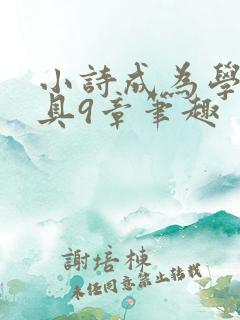 小詩成為學
具9章筆趣
謝培棟
未經同意禁止轉載